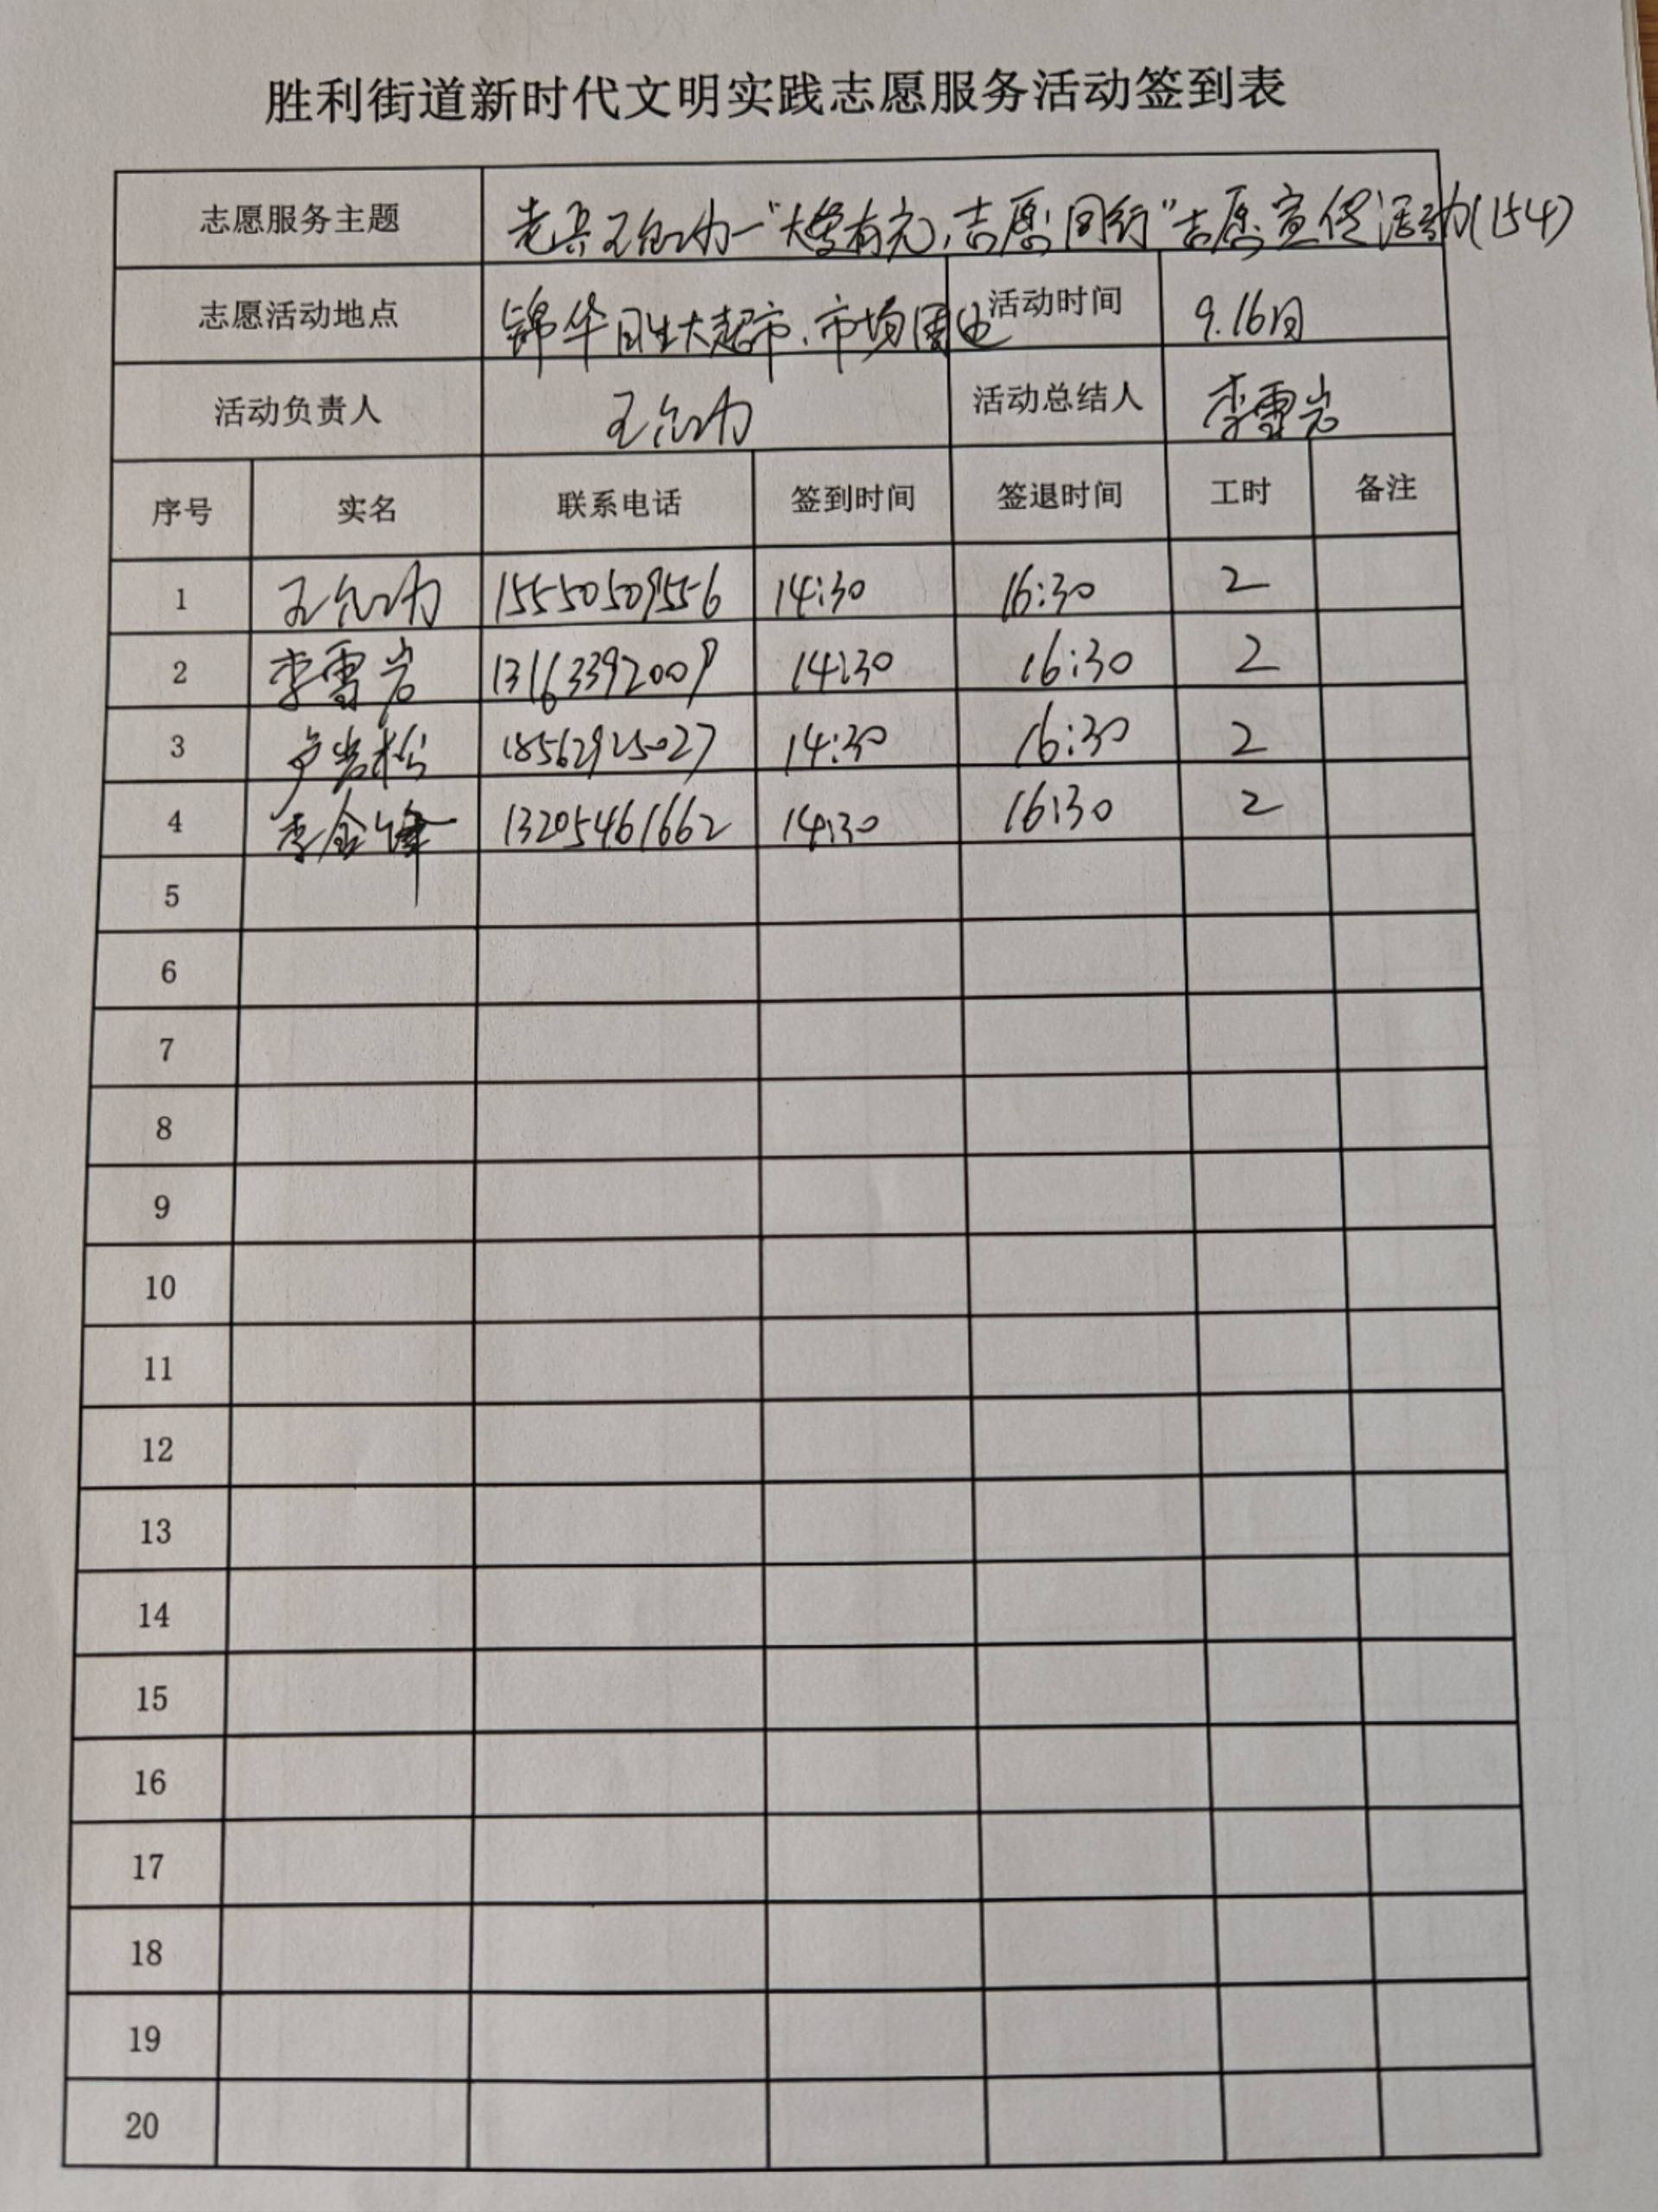 胜利街道新时代文明实践志愿服务活动签到表
志愿服务主题 老兵王包力一"大学有光,志愿同行"志愿宣促活动(154)
志愿活动地点 锦华日生大超市、市场周边 活动时间 9.16日
活动负责人 活动总结人 李雪岩
序号 实名 联系电话 签到时间 签退时间 工时 备注
1 15550509556 14:30 16:30 2
2 李雪岩 13163392009 14:30 16:30 2
3 卢岩松 18562925027 14:30 16:30 2
4 李金锋 13205461662 14:30 16:30 2
5
6
7
8
9
10
11
12
13
14
15
16
17
18
19
20